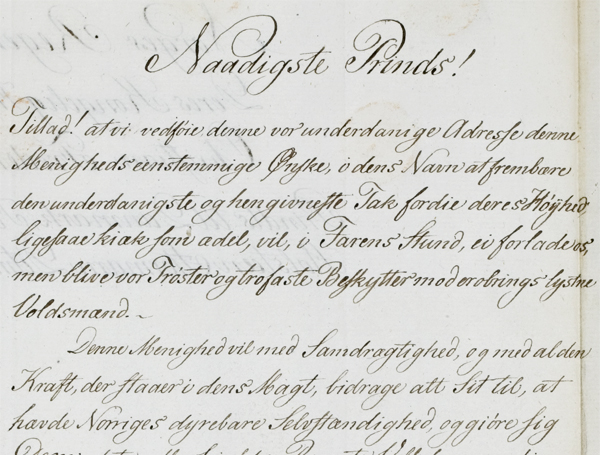 Naadigste Prinds!
Tillad! at vi vedføie denne vor underdanige Adresse denne
Menigheds eenstemmige Ønske, i dens Navn at frembære
den underdanigste og hengivneste Tak fordie deres Høÿhed,
ligesaae kiæk som ædel, vil, i Farens Stund, ei forlade os,
men blive vor Trøster og trofaste Beskytter mod erobrings lystne
Voldsmænd. ~
Denne Menighed vil med Samdragtighed, og med al den
Kraft, der staaer i dens Magt, bidrage alt Sit til, at
hævde Norriges dyrebare Selvstændighed, og giöre sig